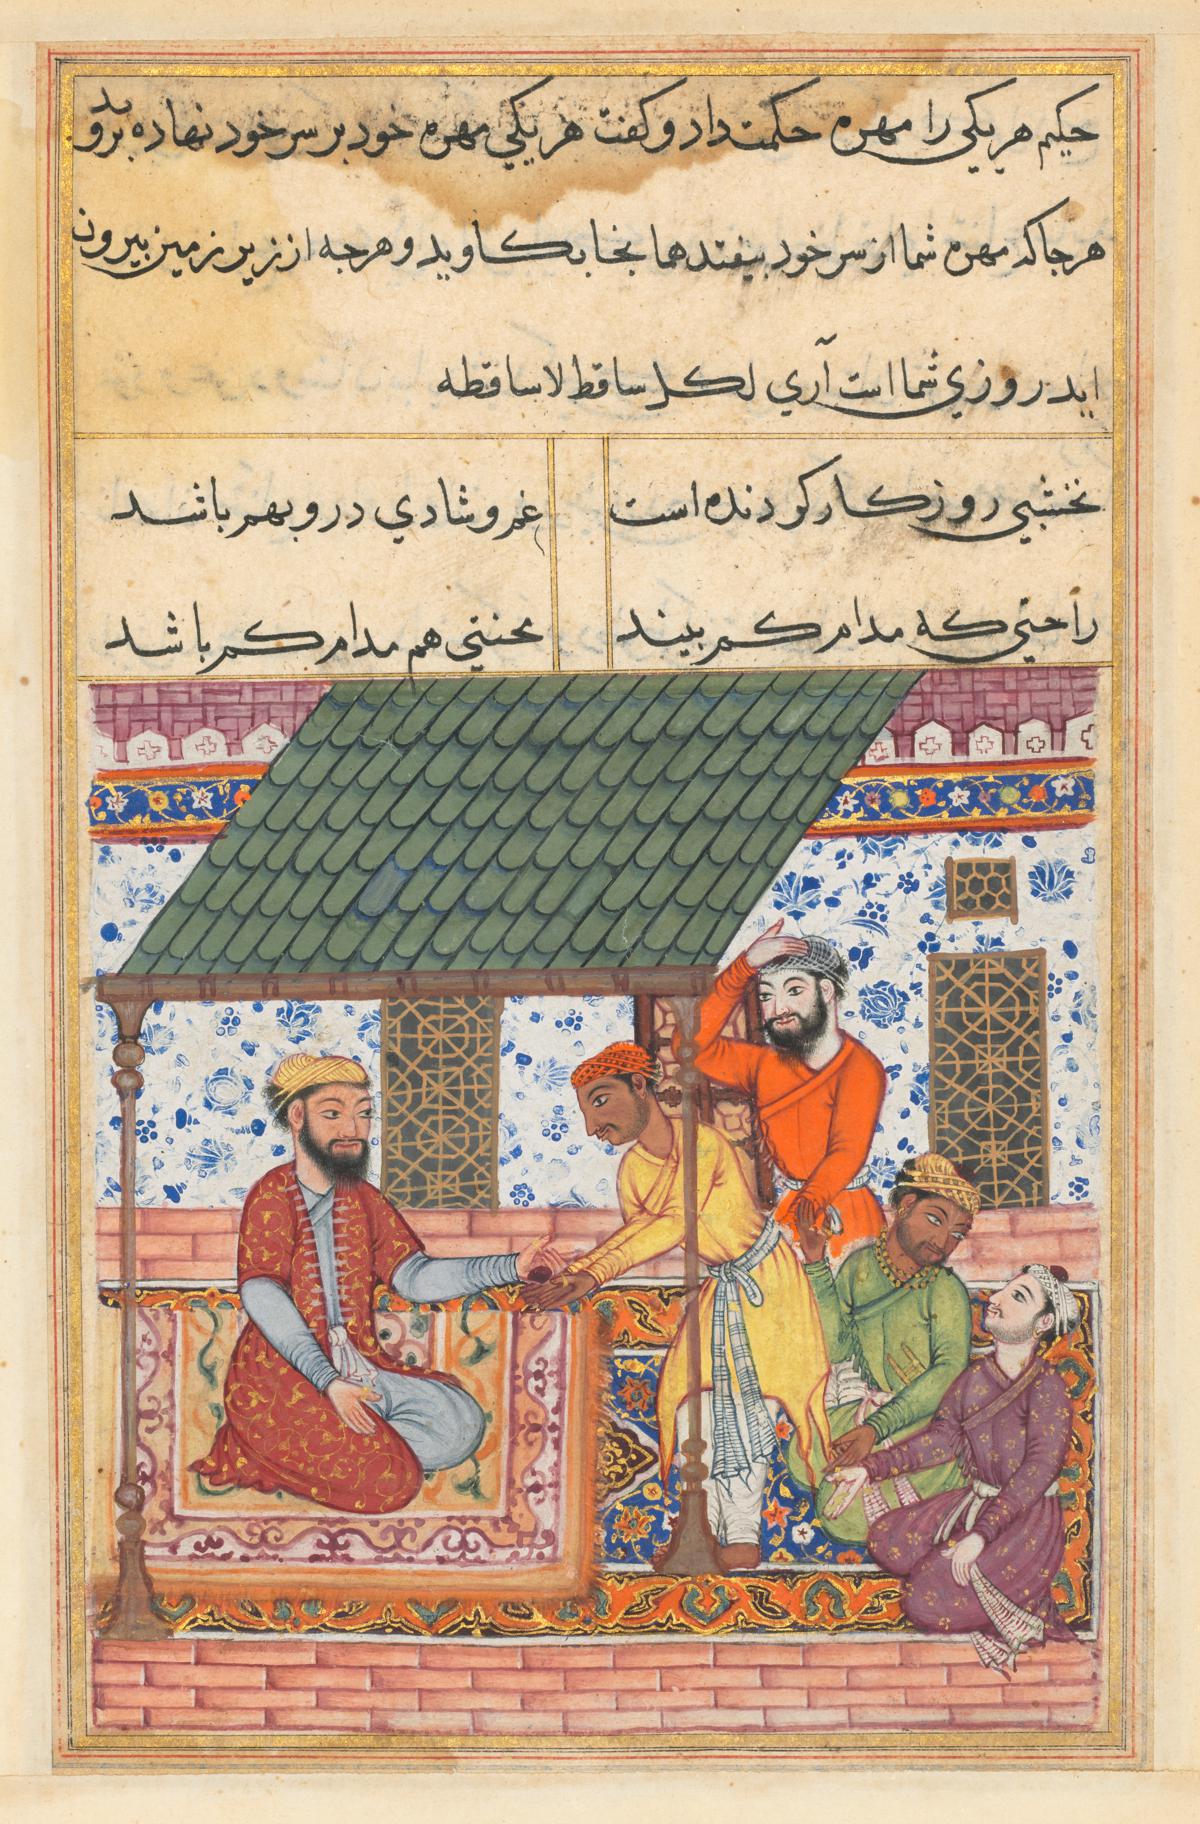 حکیم هر یکی را مهره حکمت داد و کفت هر یکی مهره خود بر سر خود نهاده بروید
هرجا که مهره شما از سر خود بیفتد همانجا بکاوید و هرچه از زیر زمین بیرون
اید روزی شما است آری لکل ساقط لاساقطه
نخشبی روزکار کردنده است غم و شادی درو بهم باشد
راحتی که مدام کم بیند محنتی هم مدام کم باشد